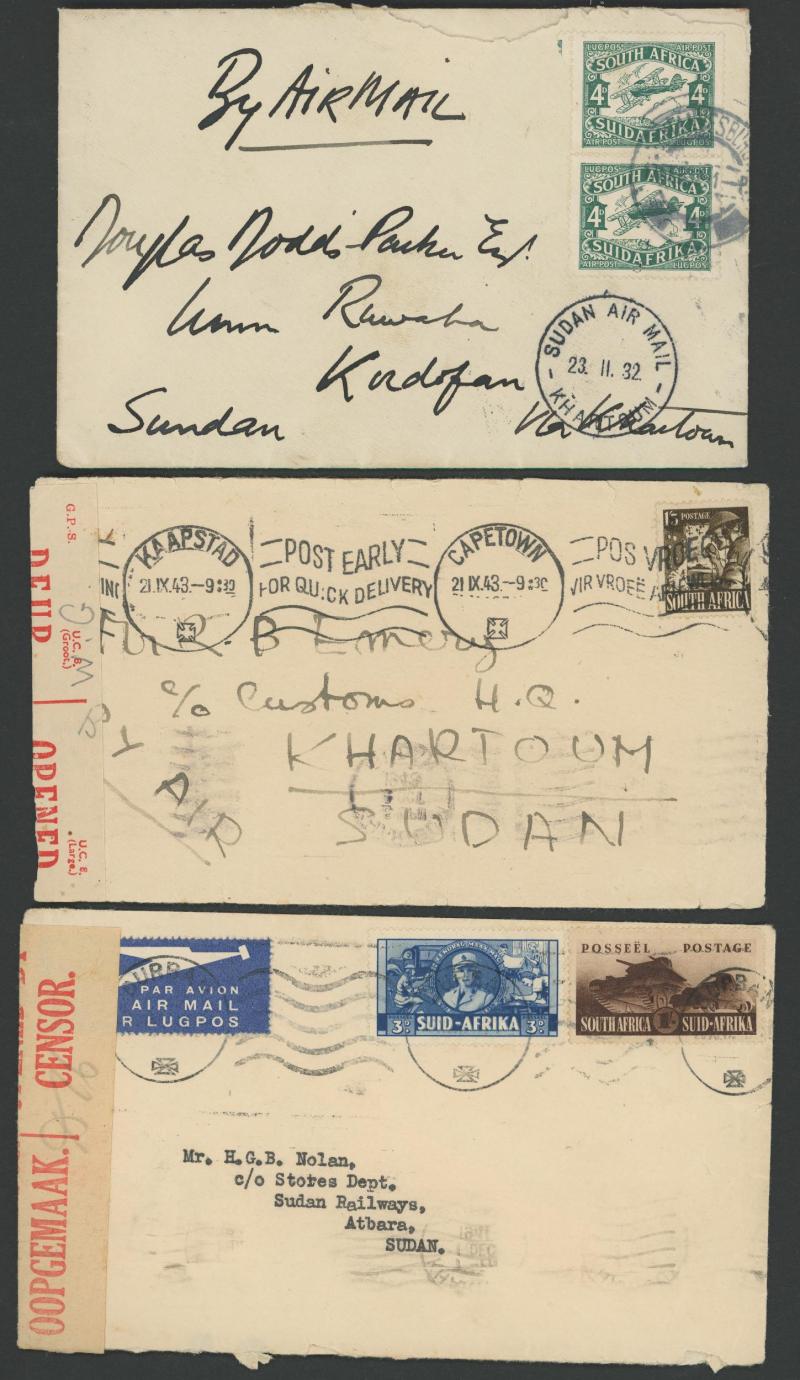 By AIR MAIL
LUGPOS AIR POST
SOUTH AFRICA
4D 4D
SUIDAFRIKA
AIR POST LUGPOS
LUGPOS AIR POST
SOUTH AFRICA
4D 4D
SUIDAFRIKA
AIR POST LUGPOS
Douglas Dodds-Parker Esq.
Umm Ruwaba
Kordofan
Sundan
Via Khartoum
SUDAN AIR MAIL
23. II. 32
KHARTOUM
G.P.S.
DEUR
U.C. 8.
(Groot.)
OPENED
U.C. 8.
(Large.)
KAAPSTAD
21.IX.43.—9
POST EARLY
FOR QUICK DELIVERY
CAPETOWN
21.IX.43.—9
POS VROEG
VIR VROEË
1'5 POSTAGE
SOUTH AFRICA
R. B Emery
c/o Customs H.Q.
KHARTOUM
SUDAN
BY AIR
OOPGEMAAK. CENSOR.
PAR AVION
AIR MAIL
R LUGPOS
3D 3D
SUID-AFRIKA
POSSEËL POSTAGE
SOUTH AFRICA 1/- SUID-AFRIKA
DURBAN
Mr. H.G.B. Nolan,
c/o Stores Dept.
Sudan Railways,
Atbara,
SUDAN.